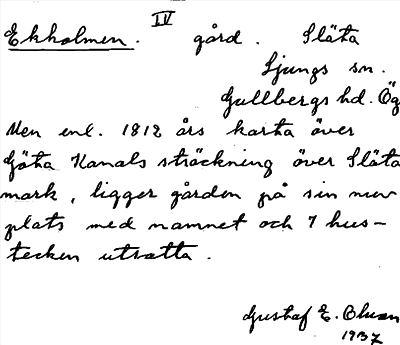 IV
Ekholmen. gård. Släta
Ljungs sn.
Gullbergs hd. Ög
Men enl. 1812 års karta över
Göta Kanals sträckning över Släta
mark, ligger gården på sin nuv
plats med namnet och 7 hus-
tecken utsatta.
Gustaf E. Olsson
1937